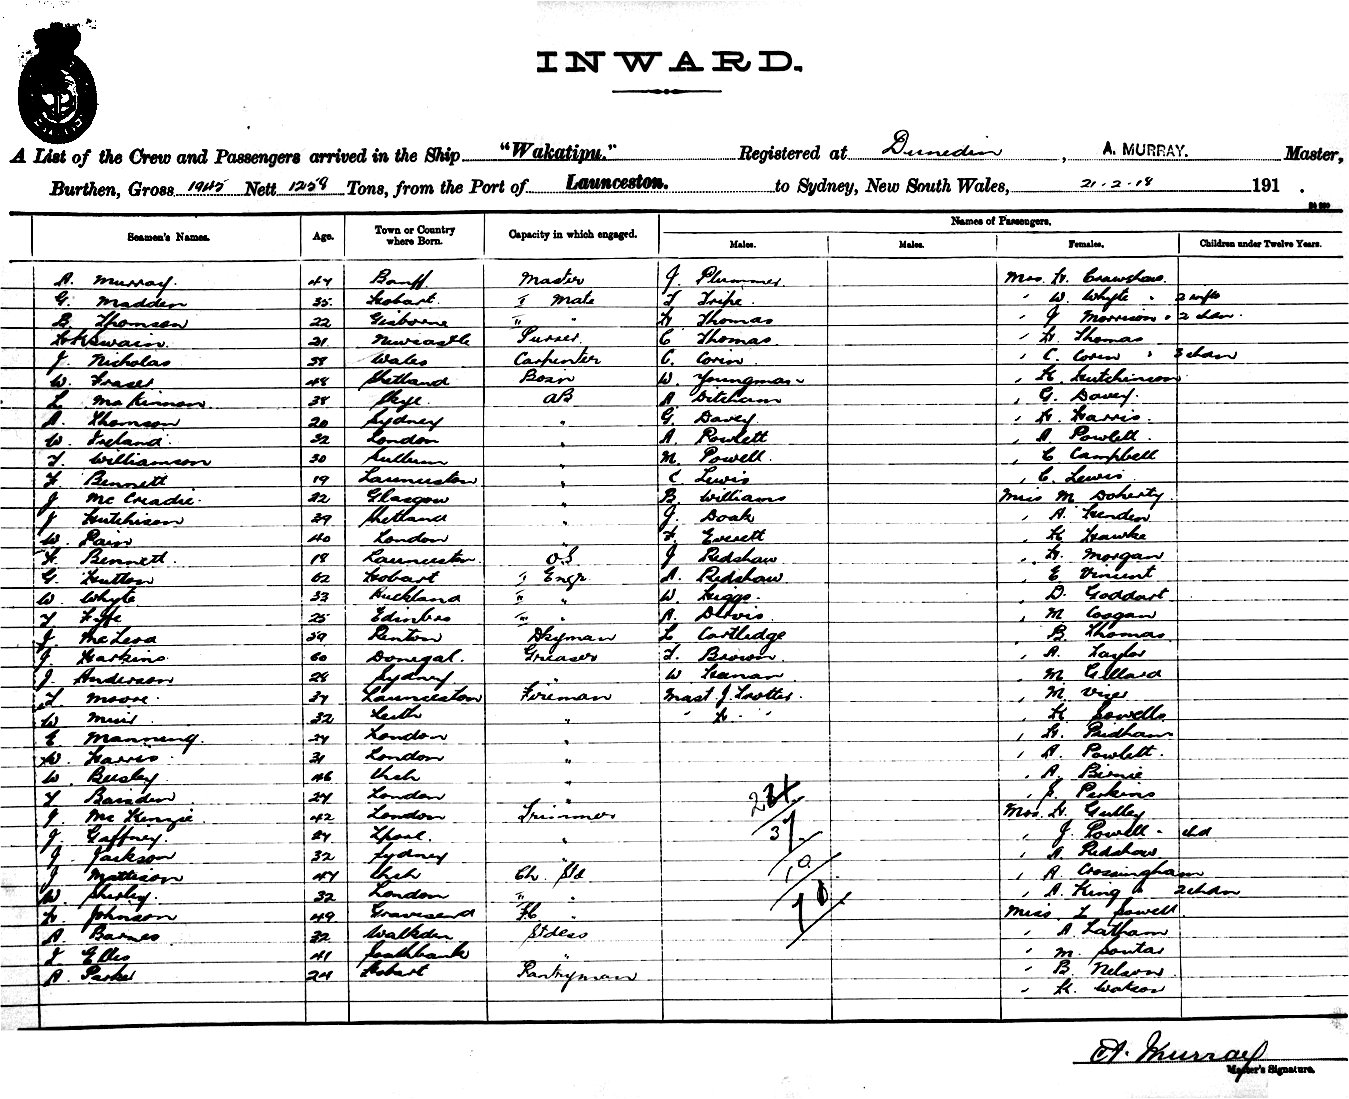 INWARD.
A List of the Crew and Passengers arrived in the Ship "Wakatipu." Registered at Dunedin, A. MURRAY. Master,
Burthen, Gross 1945 Nett 1259 Tons, from the Port of Launceston. to Sydney, New South Wales, 21.2.18 191 .
Names of Passengers.
Seamen's Names. Age. Town or Country where Born. Capacity in which engaged. Males. Males. Females. Children under Twelve Years.
A. Murray. 47 Banff Master J Plummer Mrs. H. Crawshaw
G. Madden 35 Hobart. I Mate T Tripe " W. Whyte 2 infts
B. Thomson 22 Gisborne II " H Thomas " J Morrison 2 chdn.
Swain. 21 Newcastle Purser. C Thomas " H Thomas
J. Nicholas 38 Wales Carpenter C. Corin " C. Corin " 3 chdn
W. Fraser 48 Shetland Bosn W. Youngman " H Hutchinson
L McKinnon. 38 Skye. AB A Ditcham " G. Davey.
A. Thomson 20 Sydney " G. Davey " H. Harris.
W. Ireland. 32 London " A. Powlett " A. Powlett.
T. Williamson 30 " M. Powell. " C Campbell
F. Bennett 19 Launceston " C Lewis " C. Lewis
J McCreadie. 22 Glasgow " B. Williams Miss M. Doherty
J Hutchison 29 Shetland " J. Doak " A.
W. Pain 40 London " F. Everett " H Hawke
F. Bennett. 18 Launceston OS J Redshaw " H. Morgan
G. Hutton 62 Hobart I Engr A. Redshaw " E Vincent
W Whyte 33 Auckland II " W. Higgs. " D. Goddart
T Fyffe 25 III " A. " M Cosgan
J. McLeod 39 Renton Dkyman L Cartledge " B. Thomas
J. Harkins 60 Donegal. Greaser T. Brown " A. Taylor
J. Anderson 28 Sydney " W " M Gillard
T. Moore. 37 Launceston Fireman Mast J. Trotter. " M
W Muir 32 Leith " " H. " " H Sowells
E Manning. 24 London " " H. Pridham
W. Harris. 31 London " " A. Powlett.
W. 46 " " A. Birnie
T 24 London " " E. Perkins
J. McKenzie 42 London Trimmer Mrs. H. Gulley
J. Gaffney. 24 " " J. Powell chd
J. Jackson 32 Sydney " " A Redshaw
J Mattison 47 Ch. Std " A Crossingham
W. Shirley. 32 London II " " A. King 2 chdn
H Johnson 49 Gravesend " Miss L Sowell
A Barnes 32 Walkden Stdess " A Latham
J Ellis 41 Southbank " " M. Soutar
A Parker 24 Hobart Pantryman " B. Nelson
" H. Watson
37
10
A. Murray
Master's Signature.